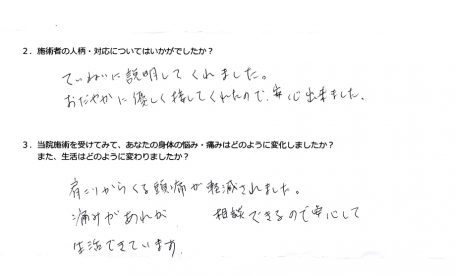 2．施術者の人柄・対応についてはいかがでしたか？
ていねいに説明してくれました。
おだやかに優しく接してくれたので、安心出来ました。
3．当院施術を受けてみて、あなたの身体の悩み・痛みはどのように変化しましたか？
また、生活はどのように変わりましたか？
肩こりからくる頭痛が軽減されました。
痛みがあれば 相談できるので安心して
生活できています。